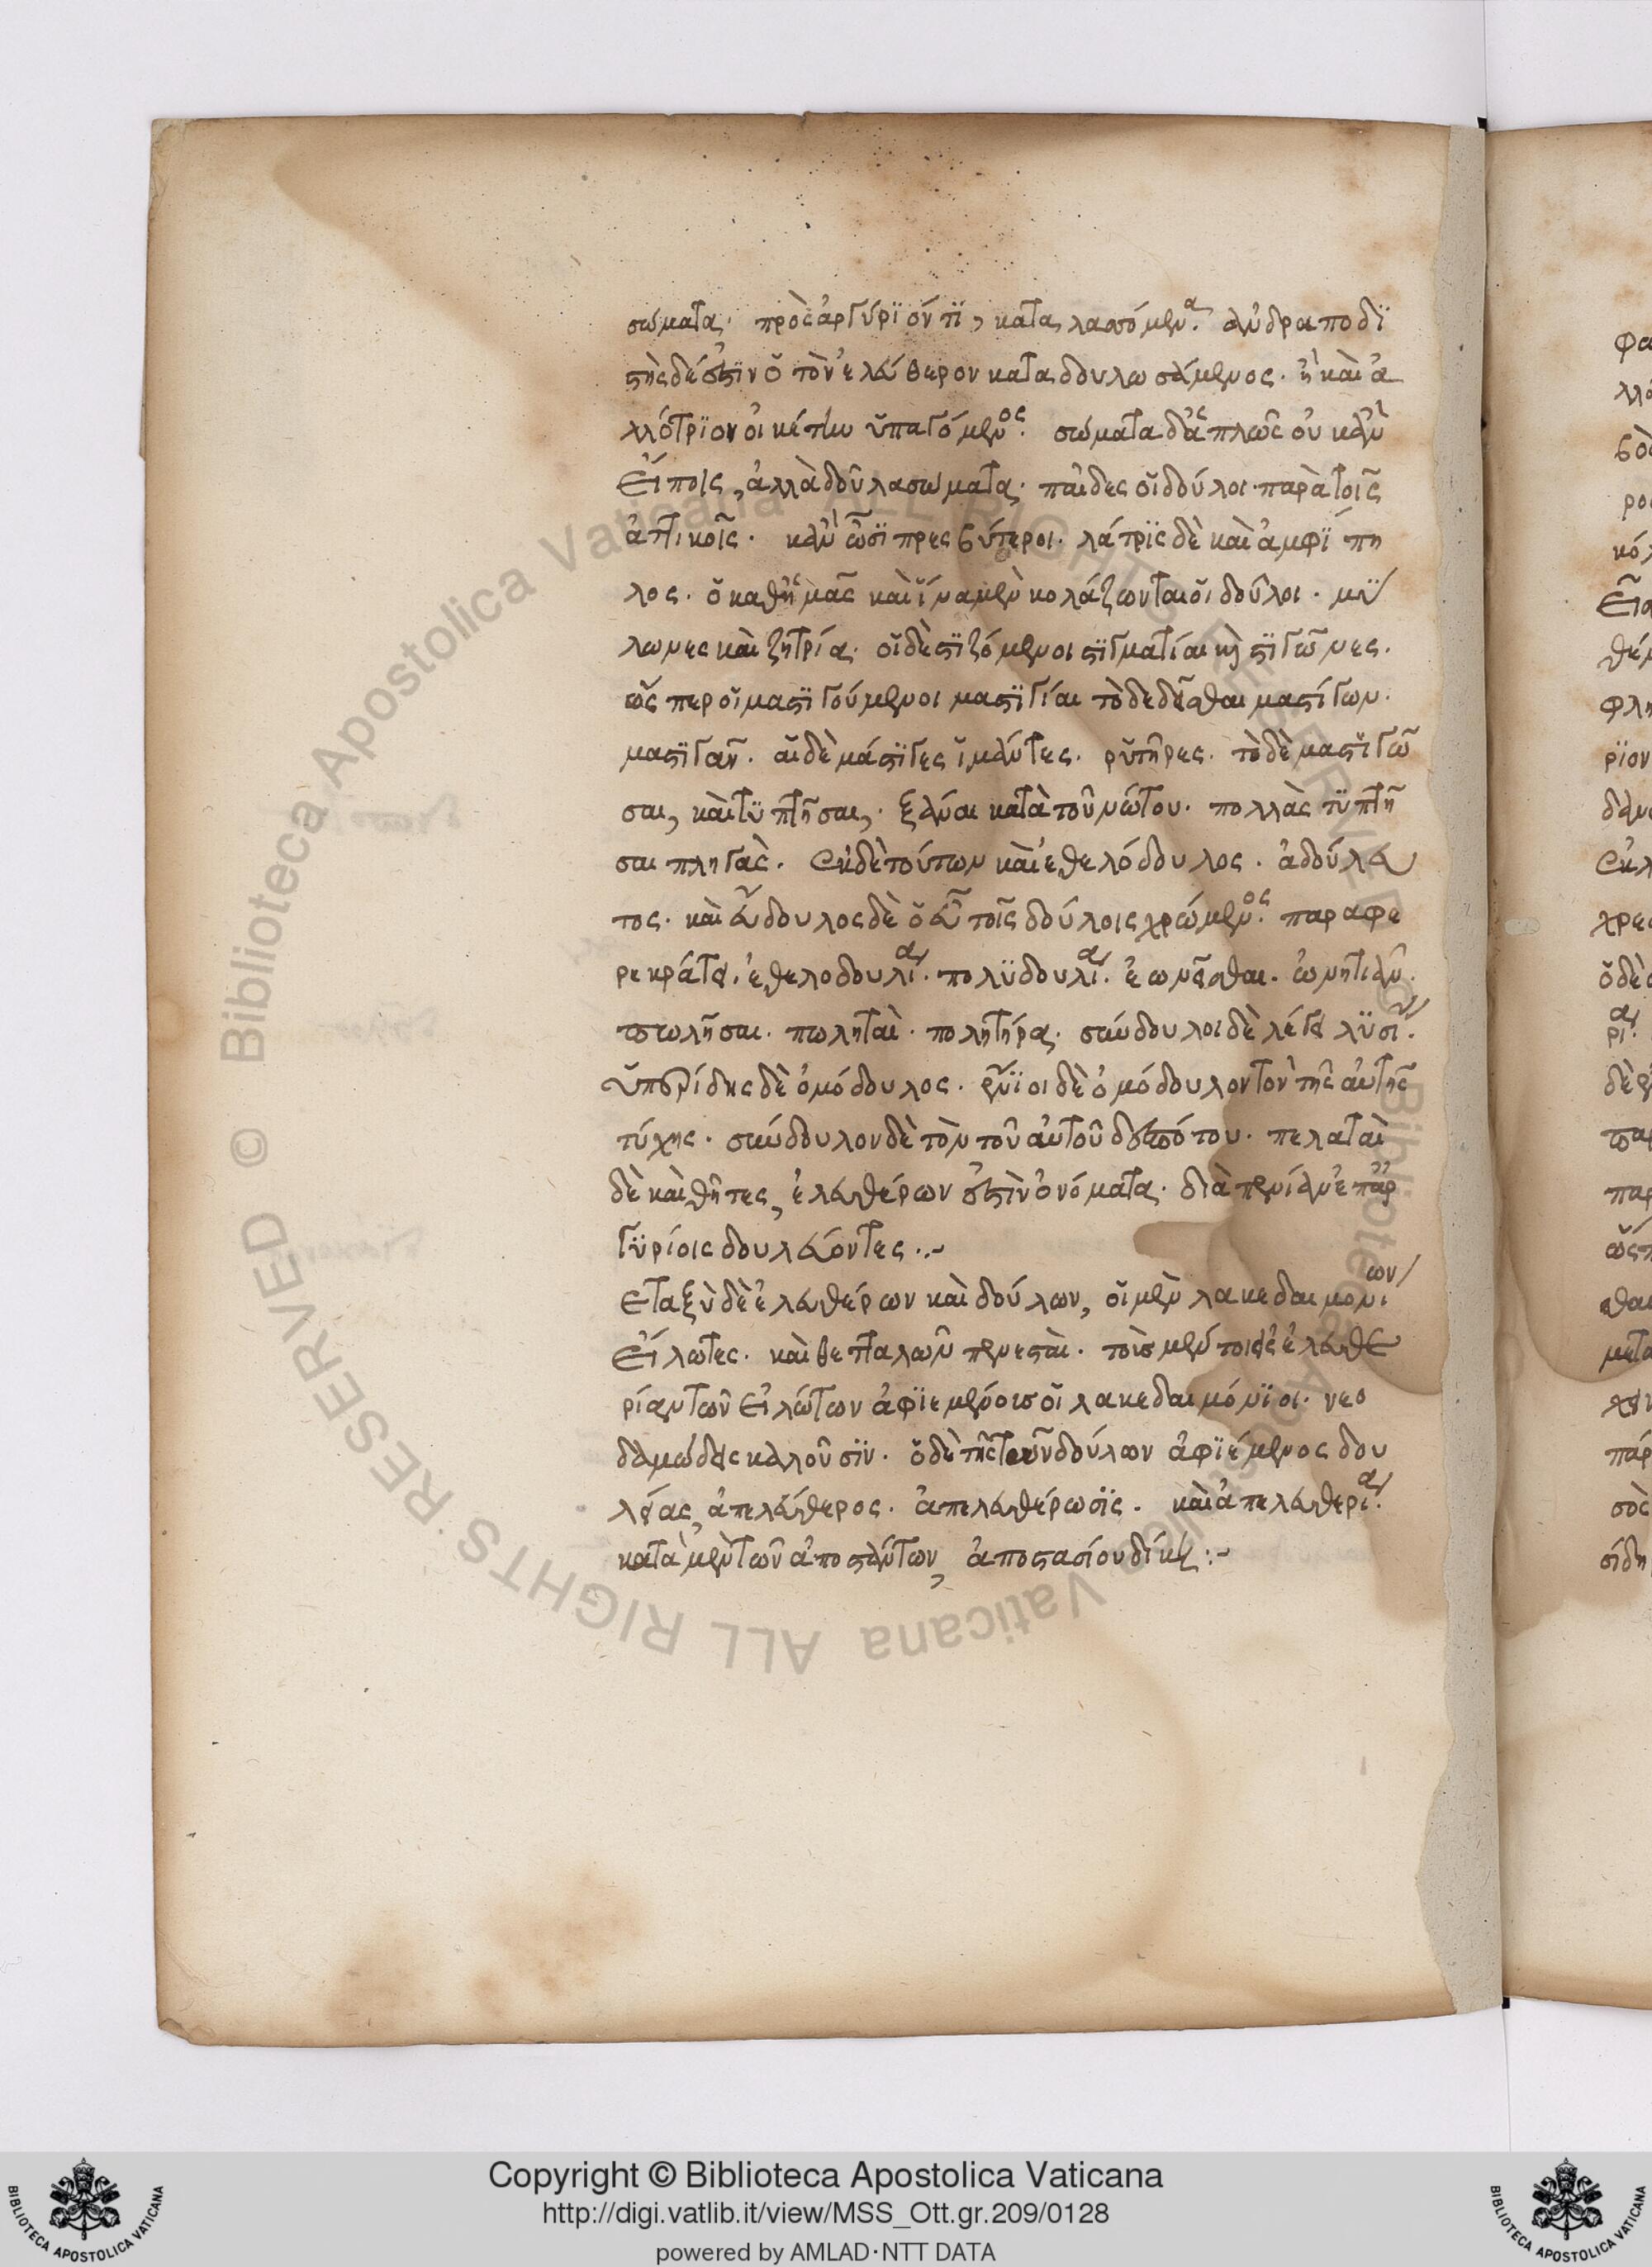 σώματα· πρὸς ἀργύριόν τι, καταλασόμενα. ἀνδραποδϊ
στὴς δέ ἐστιν ὁ τὸν ἐλεύθερον καταδουλωσάμενος· ἢ καὶ ἀ
λλότριον οἰκέτην ὑπαγόμενος. σώματα δ' ἁπλῶς οὐκ ἂν
εἴποις, ἀλλὰ δοῦλα σώματα· παῖδες οἱ δοῦλοι παρὰ τοῖς
ἀττικοῖς· κἂν ὦσι πρεσβύτεροι· λάτρις δὲ καὶ ἀμφίπη
λος· ὁ καθ' ἡμᾶς καὶ ἵνα μὲν κολάζωνται οἱ δοῦλοι· μύ
λωνες καὶ ζητρία· οἱ δὲ στιζόμενοι στιγματίαι καὶ στίγωνες·
ὥσπερ οἱ μαστιγούμενοι μαστιγίαι τὸ δεδέσθαι μαστίγων·
μαστιγᾶν· αἱ δὲ μάστιγες ἱμάντες· ῥυτῆρες· τὸ δὲ μαστιγῶ
σαι, καὶ τυπτῆσαι, ξᾶναι κατὰ τοῦ νώτου· πολλὰς τυπτῆ
σαι πληγάς· ἐκ δὲ τούτων καὶ ἐθελόδουλος· ἀδούλευ
τος· καὶ εὔδουλος δὲ ὁ εὖ τοῖς δούλοις χρώμενος. παρα φε
ρεκράτει· ἐθελοδουλία. πολυδουλία. ἐωνεῖσθαι· ὠνητιᾶν·
πωλῆσαι· πωληταὶ· πολητήρα· σύνδουλοι δὲ λέγει λυσίας·
ὑπερίδης δὲ ὁμόδουλος· ἔνιοι δὲ ὁμόδουλον τὸν τῆς αὐτῆς
τύχης· σύνδουλον δὲ τὸν τοῦ αὐτοῦ δεσπότου· πελαταὶ
δὲ καὶ θῆτες, ἐλευθέρων ἐστὶν ὀνόματα· διὰ πενίαν ἐπ' ἀρ
γυρίοις δουλεύοντες.
εταξὺ δὲ ἐλευθέρων καὶ δούλων, οἱ μὲν λακεδαιμονίων
εἵλωτες· καὶ θετταλῶν πενεσταὶ· τοῖς μέντοι εἰς ἐλευθε
ρίαν τῶν εἱλώτων ἀφιεμένοις οἱ λακεδαιμόνιοι· νεο
δαμώδεις καλοῦσιν· ὁ δὲ τῆς τῶν δούλων ἀφιέμενος δου
λείας, ἀπελεύθερος· ἀπελευθέρωσις· καὶ ἀπελευθερία.
κατὰ μὲν τῶν ἀποστάντων, ἀποστασίου δίκη:
© Biblioteca Apostolica Vaticana ALL RIGHTS RESERVED
Copyright © Biblioteca Apostolica Vaticana
http://digi.vatlib.it/view/MSS_Ott.gr.209/0128
powered by AMLAD·NTT DATA
BIBLIOTECA APOSTOLICA VATICANA
BIBLIOTECA APOSTOLICA VATICANA